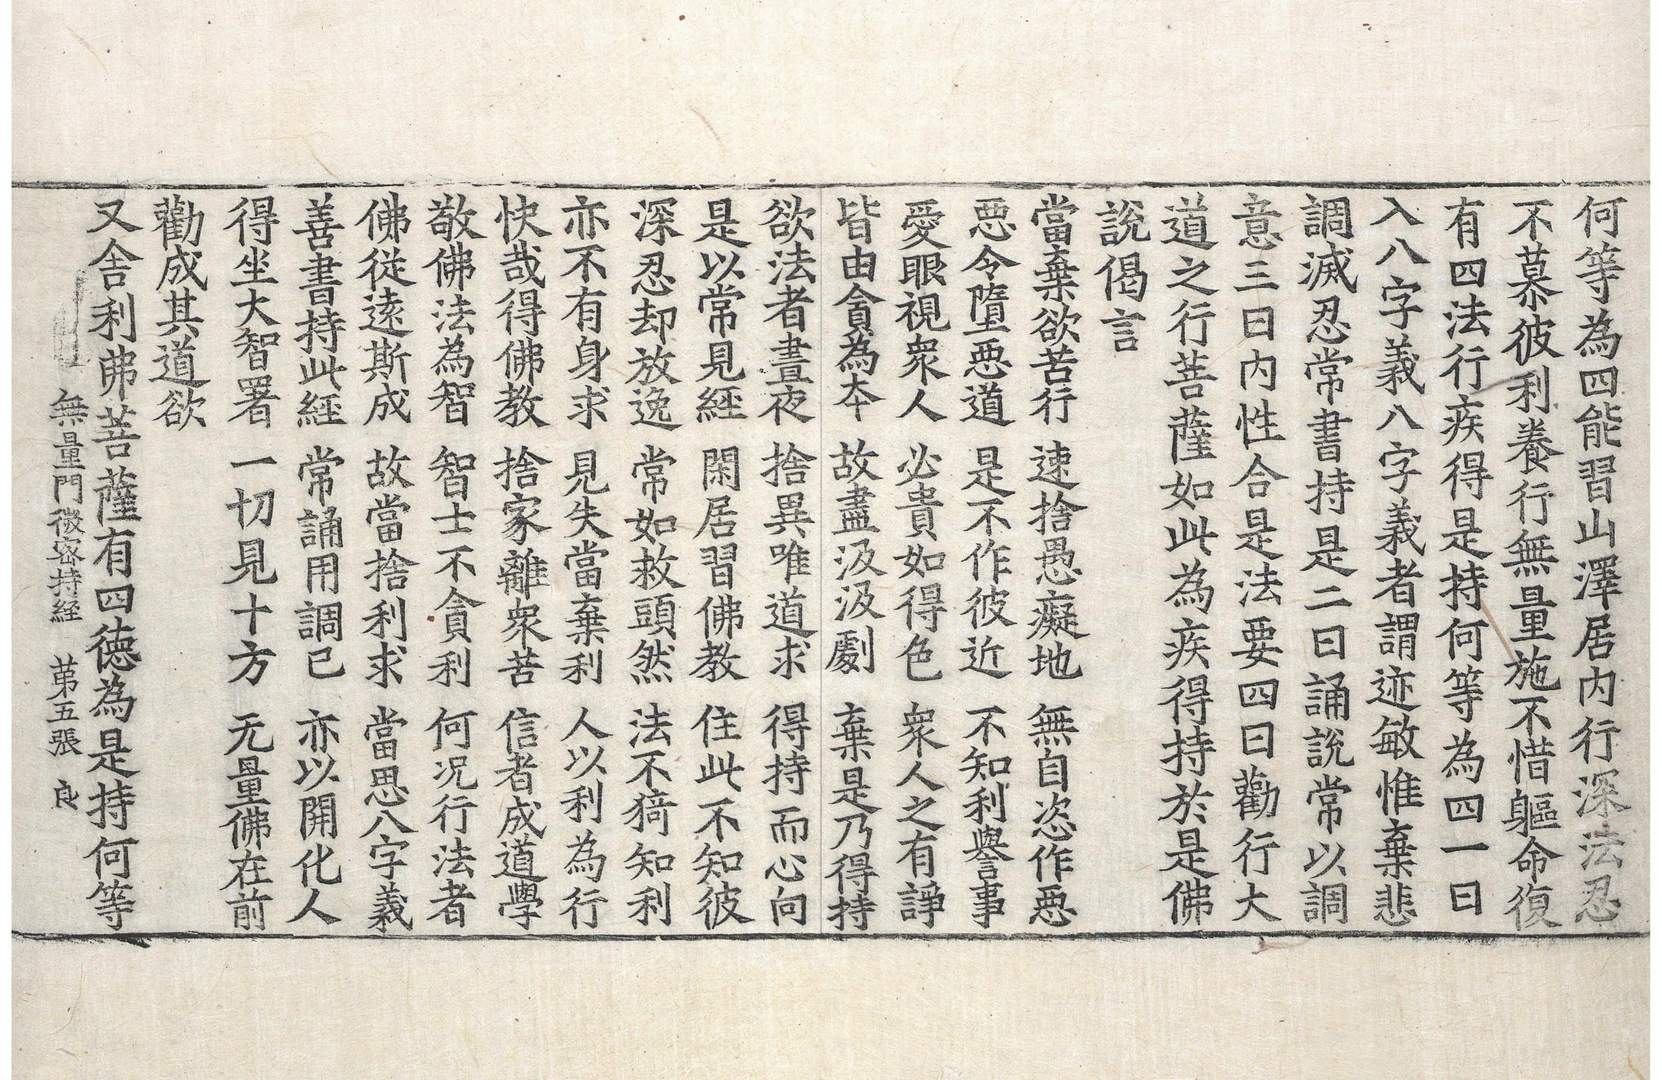 何等為四能習山澤居内行深法忍
不慕彼利養行無量施不惜軀命復
有四法行疾得是持何等為四一曰
入八字義八字義者謂迹敏惟棄悲
調滅忍常書持是二曰誦說常以調
意三曰内性合是法要四曰勸行大
道之行菩薩如此為疾得持於是佛
說偈言
當棄欲苦行　速捨愚癡地　無自恣作惡
惡令墮惡道　是不作彼近　不知利譽事
愛眼視衆人　必貴如得色　衆人之有諍
皆由貪為本　故盡汲汲劇　棄是乃得持
欲法者晝夜　捨異唯道求　得持而心向
是以常見經　閑居習佛教　住此不知彼
深忍却放逸　常如救頭然　法不猗知利
亦不有身求　見失當棄利　人以利為行
快哉得佛教　捨家離衆苦　信者成道學
敬佛法為智　智士不貪利　何况行法者
佛從遠斯成　故當捨利求　當思八字義
善書持此經　常誦用調已　亦以開化人
得坐大智署　一切見十方　无量佛在前
勸成其道欲
又舍利弗菩薩有四德為是持何等
無量門微密持經　苐五張　良